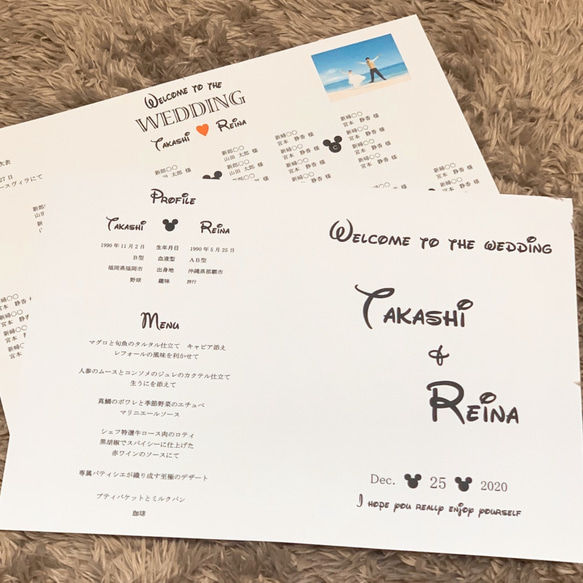 WELCOME TO THE
WEDDING
TAKASHI REINA
新郎〇〇
山田 太郎 様
新婦〇〇
宮本 静香 様
新婦〇〇
宮本 静香 様
新婦〇〇
宮本 静香 様
新婦〇〇
宮本 静香 様
PROFILE
TAKASHI REINA
1990年11月2日 生年月日 1990年5月25日
B型 血液型 AB型
福岡県福岡市 出身地 沖縄県那覇市
野球 趣味 旅行
MENU
マグロと旬魚のタルタル仕立て キャビア添え
レフォールの風味を利かせて
人参のムースとコンソメのジュレのカクテル仕立て
生うにを添えて
真鯛のポワレと季節野菜のエチュベ
マリニエールソース
シェフ特選牛ロース肉のロティ
黒胡椒でスパイシーに仕上げた
赤ワインのソースにて
専属パティシエが織り成す至極のデザート
プティバケットとミルクパン
珈琲
WELCOME TO THE WEDDING
TAKASHI
&
REINA
Dec. 25 2020
I HOPE YOU REALLY ENJOY YOURSELF